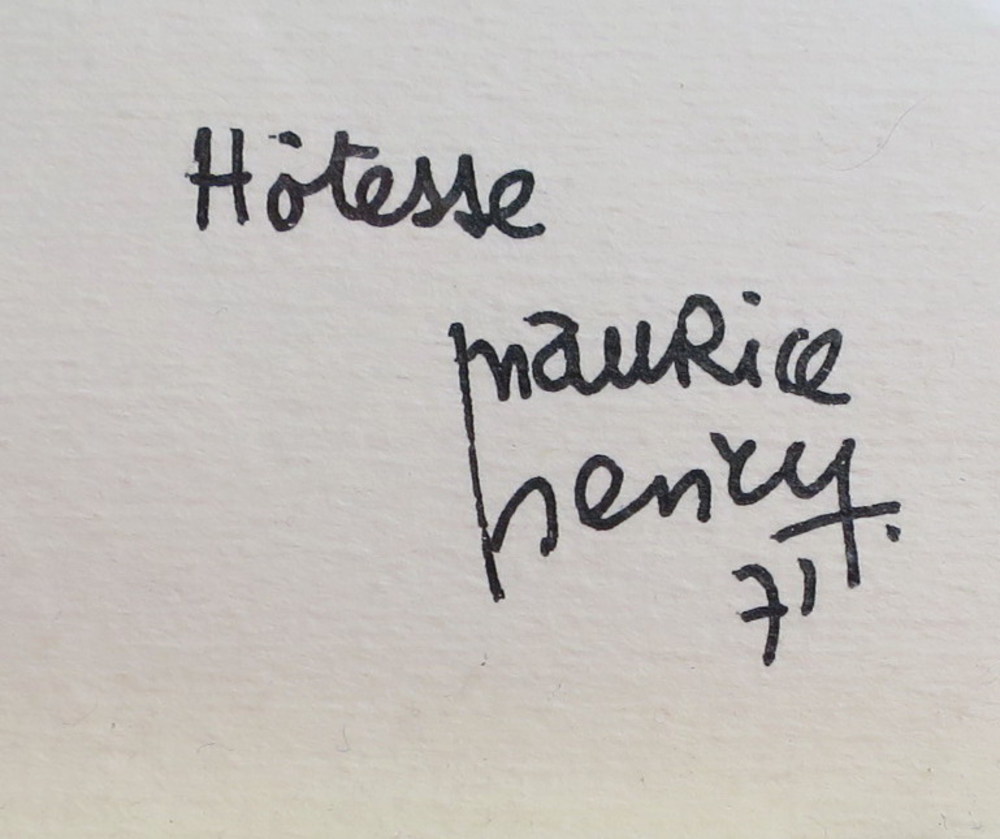 Hôtesse
mauRice
henry.
71